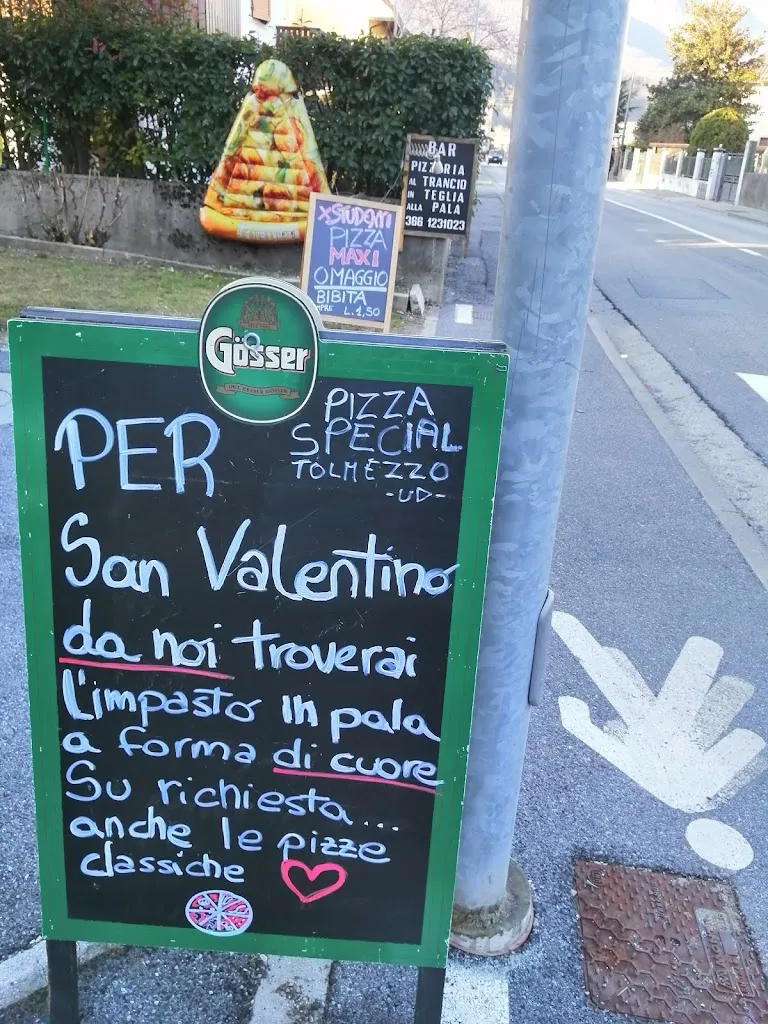 BAR
PIZZERIA
AL TRANCIO
IN TEGLIA
ALLA PALA
366 1231023
X STUDENTI
PIZZA
MAXI
OMAGGIO
BIBITA
1,50
Gösser
PIZZA
SPECIAL
TOLMEZZO
-UD-
PER
San Valentino
da noi troverai
L'impasto in pala
a forma di cuore
Su richiesta...
anche le pizze
classiche